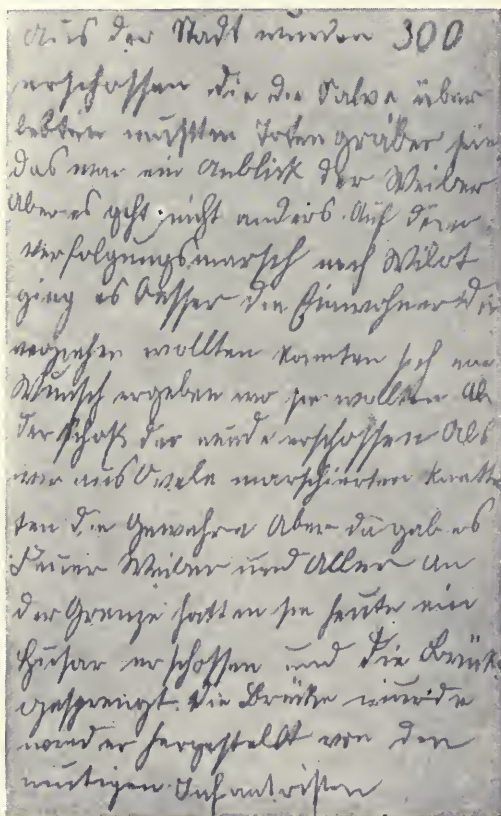 Aus der Stadt wurden 300
erschossen die die Salve über
lebten mußten Totengräber sein
das war ein Anblick der Weiber
Aber es geht nicht anders. Auf dem
verfolgungsmarsch nach Wilot
ging es besser die Einwohner die
verziehen wollten konnten sich nach
Wunsch ergeben wo sie wollten Ab
der schoß der wurde erschossen Als
wir aus Owele marschierten knatte
ten die Gewehre Aber da gab es
Feuer Weiber und Alles An
der Grenze hatten sie heute ein
Husar erschossen und die Brück
gesprengt. die Brücke wurde
wieder hergestellt von den
mutigen Infantristen